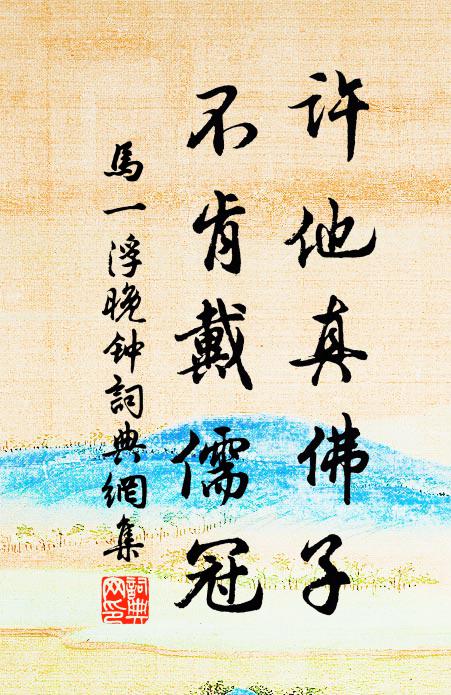 許他真佛子
不肯戴儒冠
馬一浮晚钟詞典網集
詞典网印